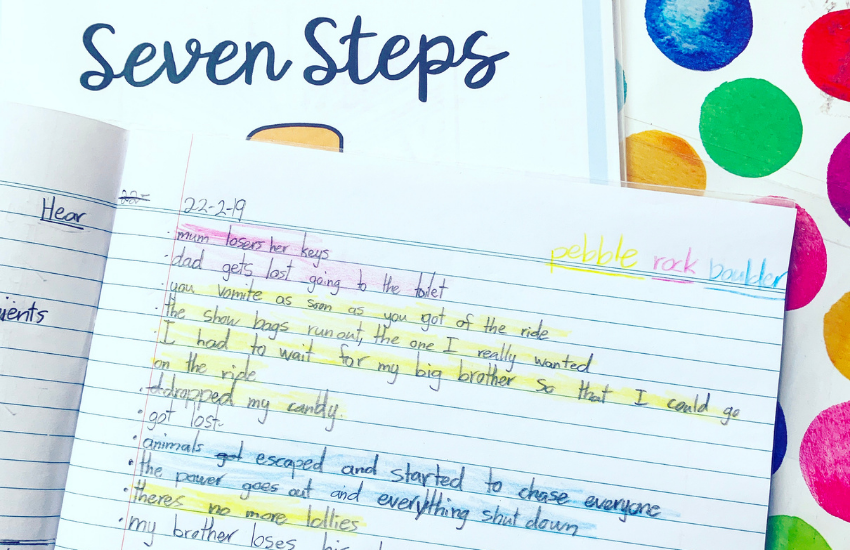 Seven Steps
Hear
22-2-19
pebble rock boulder
· mum losers her keys
· dad gets lost going to the toilet
· you vomite as soon as you got of the ride
· the show bags run out, the one I really wanted
· I had to wait for my big brother so that I could go
on the ride
· dropped my candy.
· got lost
· animals got escaped and started to chase everyone
· the power goes out and everything shut down
· theres no more lollies
· my brother loses